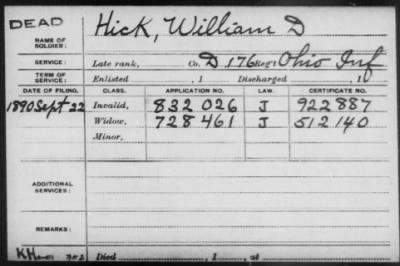 DEAD
NAME OF SOLDIER: Hick, William D
SERVICE: Late rank, Co. D, 176 Reg't Ohio Inf
TERM OF SERVICE: Enlisted , 1 Discharged , 1
DATE OF FILING. CLASS. APPLICATION NO. LAW. CERTIFICATE NO.
1890 Sept 22 Invalid, 832 026 J 922 887
Widow, 728 461 J 512 140
Minor,
ADDITIONAL SERVICES:
REMARKS:
KH
Died , 1 , at